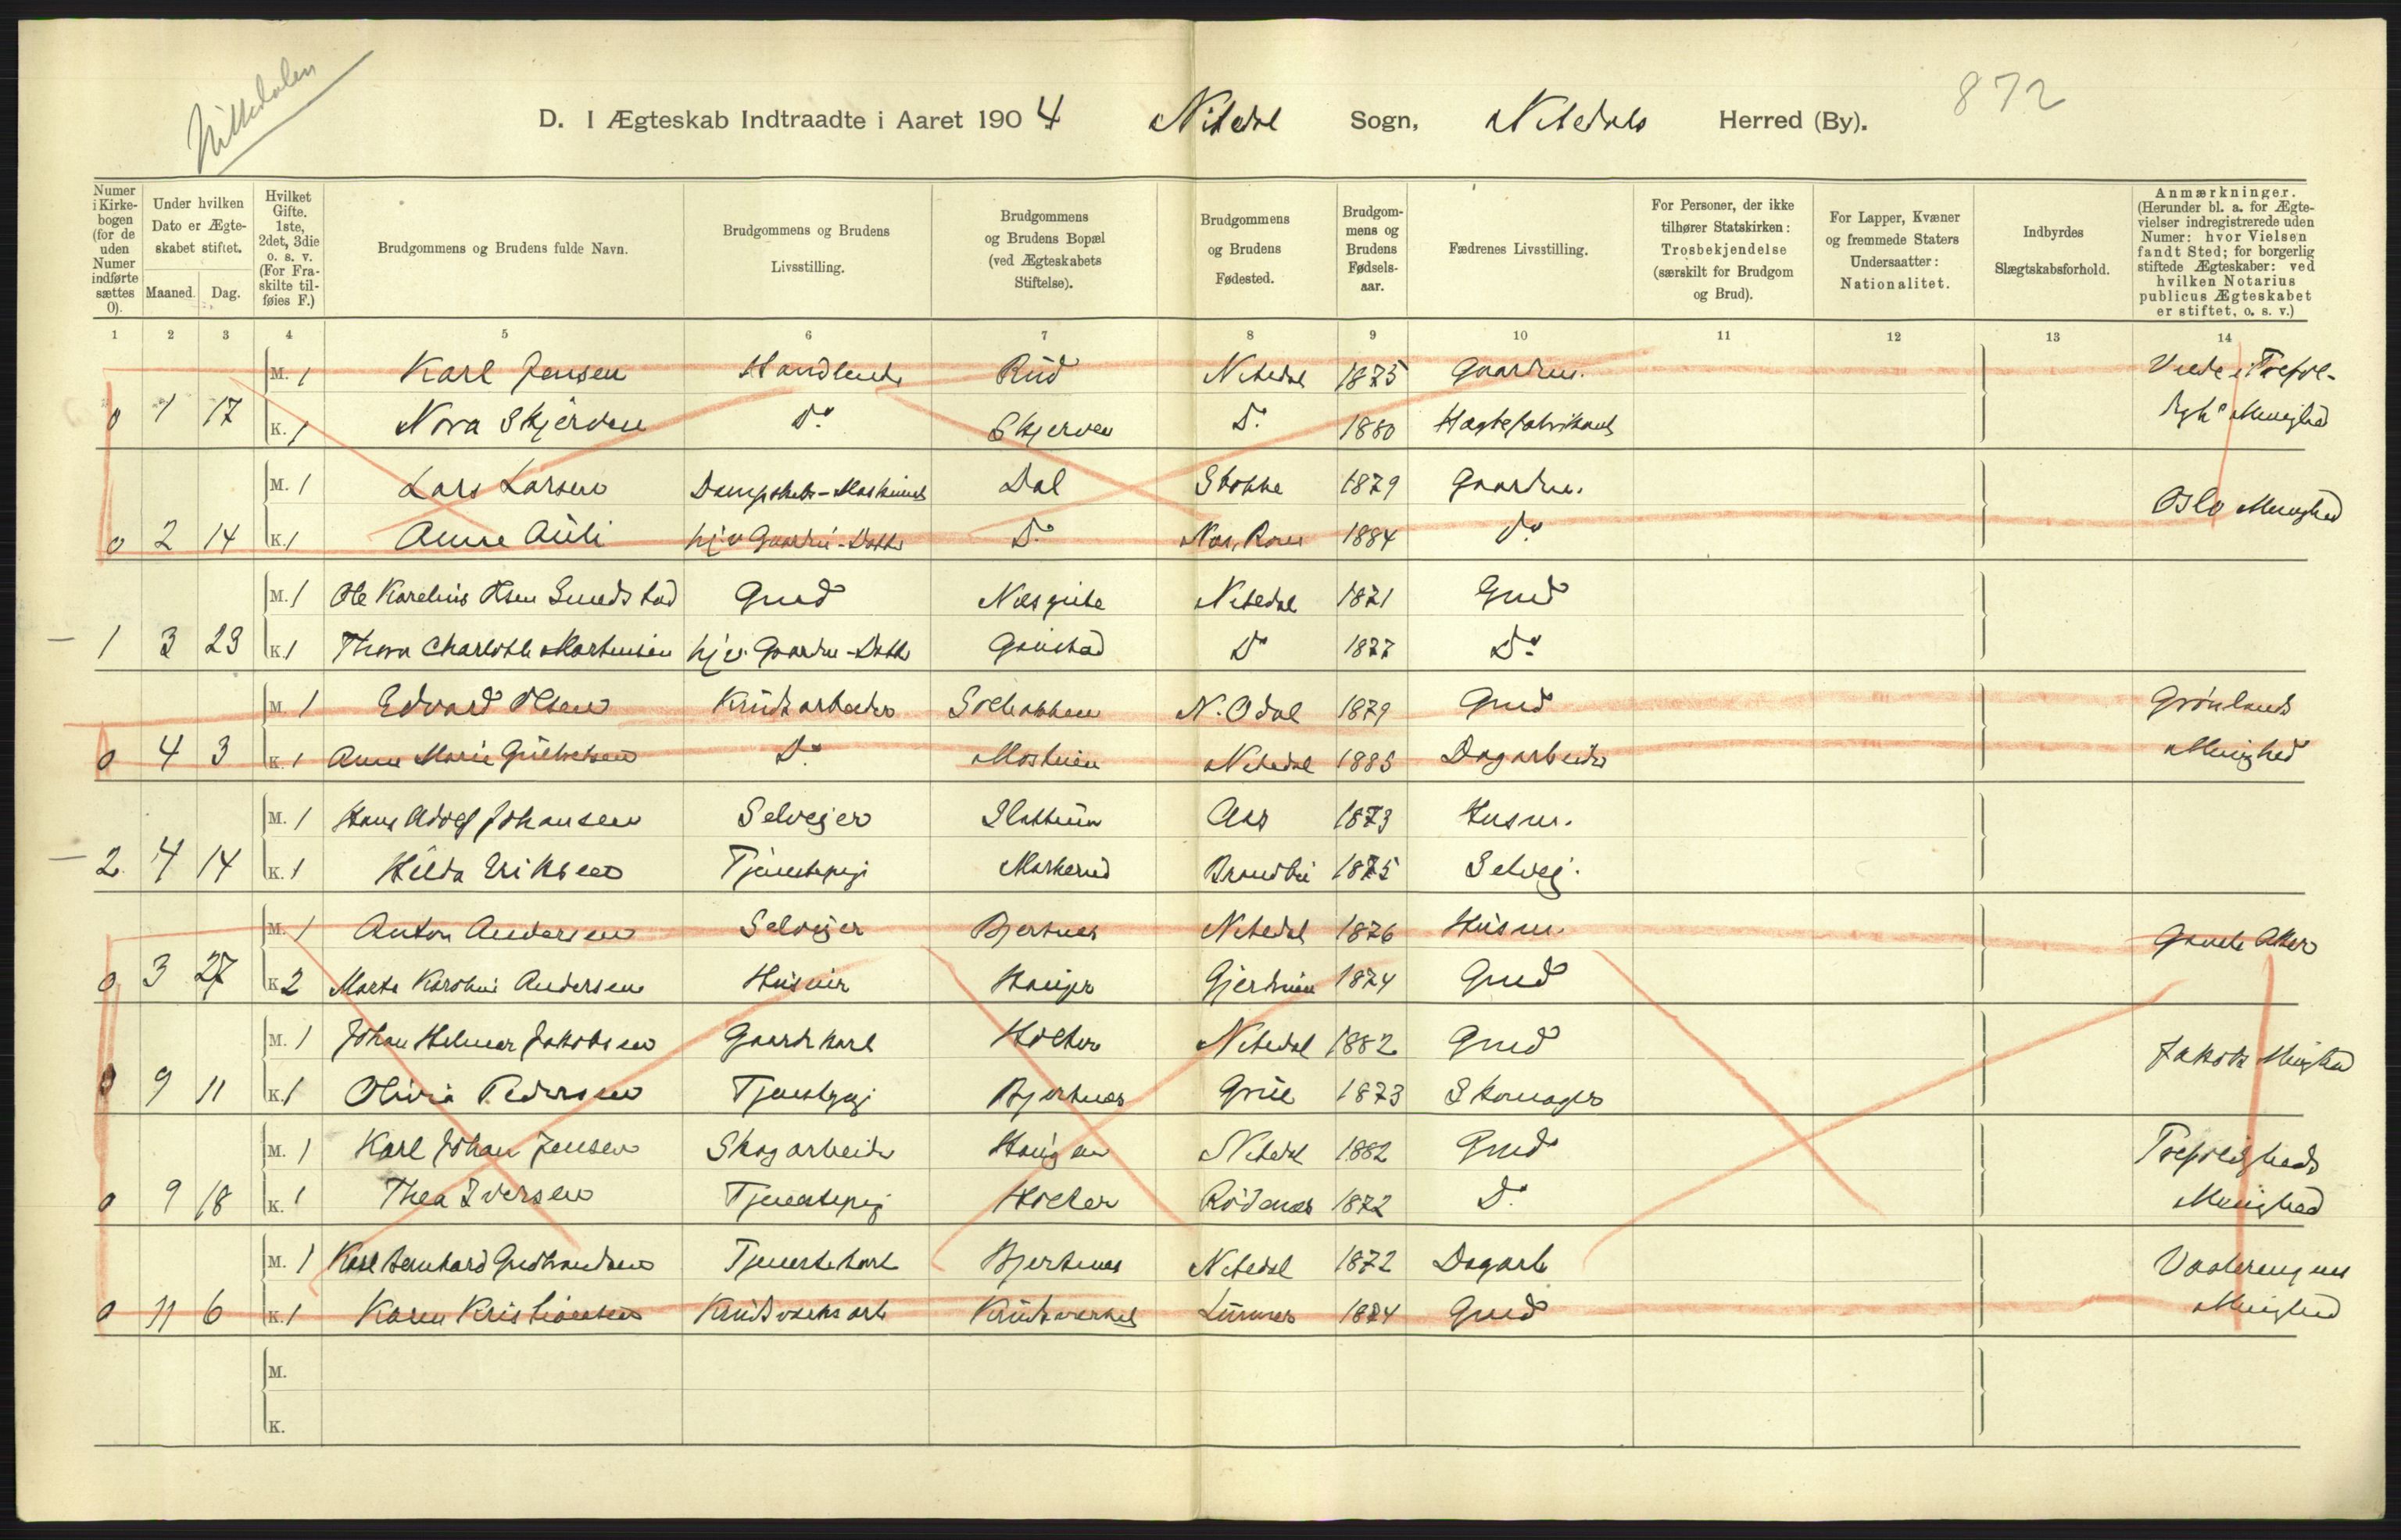 Nittedalen
872
D. I Ægteskab Indtraadte i Aaret 1904 Nitedal Sogn, Nitedals Herred (By).
Numer i Kirkebogen (for de uden Numer indførte sættes 0).
Under hvilken Dato er Ægteskabet stiftet.
Maaned. Dag.
Hvilket Gifte. 1ste, 2det, 3die o. s. v. (For Fraskilte tilføies F.)
Brudgommens og Brudens fulde Navn.
Brudgommens og Brudens Livsstilling.
Brudgommens og Brudens Bopæl (ved Ægteskabets Stiftelse).
Brudgommens og Brudens Fødested.
Brudgommens og Brudens Fødselsaar.
Fædrenes Livsstilling.
For Personer, der ikke tilhører Statskirken: Trosbekjendelse (særskilt for Brudgom og Brud).
For Lapper, Kvæner og fremmede Staters Undersaatter: Nationalitet.
Indbyrdes Slægtskabsforhold.
Anmærkninger. (Herunder bl. a. for Ægtevielser indregistrerede uden Numer: hvor Vielsen fandt Sted; for borgerlig stiftede Ægteskaber: ved hvilken Notarius publicus Ægteskabet er stiftet, o. s. v.)
1 2 3 4 5 6 7 8 9 10 11 12 13 14
M. 1 Karl Jensen Rud Nitedal 1875 Gaardm.
0 1 17 K. 1 Nora Skjerven Do Skjerven Do 1880
M. 1 Lars Larsen Dal Stokke 1879 Gaardm.
0 2 14 K. 1 Do 1884 Do Oslo Menighed
M. 1 Ole Karelius Olsen Gmd Nitedal 1871 Gmd
– 1 3 23 K. 1 Thora Charlotte Martinsen Do 1877 Do
M. 1 Edvard Olsen Krudtarbeider N. Odal 1879 Gmd Grønlands
0 4 3 K. 1 Anne Marie Do Nitedal 1885 Dagarbeider Menighed
M. 1 Hans Adolf Johansen Selvejer Aas 1873 Husm.
– 2 4 14 K. 1 Hilda Eriksen Tjenestepige Markerud Brandbu 1875 Selvej.
M. 1 Anton Andersen Selvejer Bjertnes Nitedal 1876 Husm. Gamle Aker
0 3 27 K. 2 Marte Karoline Andersen Haugen Gjerdrum 1874 Gmd
M. 1 Johan Helmer Jakobsen Gaardskarl Holter Nitedal 1882 Gmd
0 9 11 K. 1 Olivia Pedersen Tjenestepige Bjertnes Grue 1873 Skomager Jakobs Menighed
M. 1 Karl Johan Jensen Skogarbeider Haugen Nitedal 1882 Gmd Trefoldigheds
0 9 18 K. 1 Thea Iversen Tjenestepige Holter Rødenes 1872 Do Menighed
M. 1 Karl Bernhard Gudbrandsen Tjenestekarl Bjertnes Nitedal 1872 Dagarb Vaalerengens
0 11 6 K. 1 Karen Kristiansen Krudtværksarb Krudtværket Lunner 1884 Gmd Menighed
M.
K.